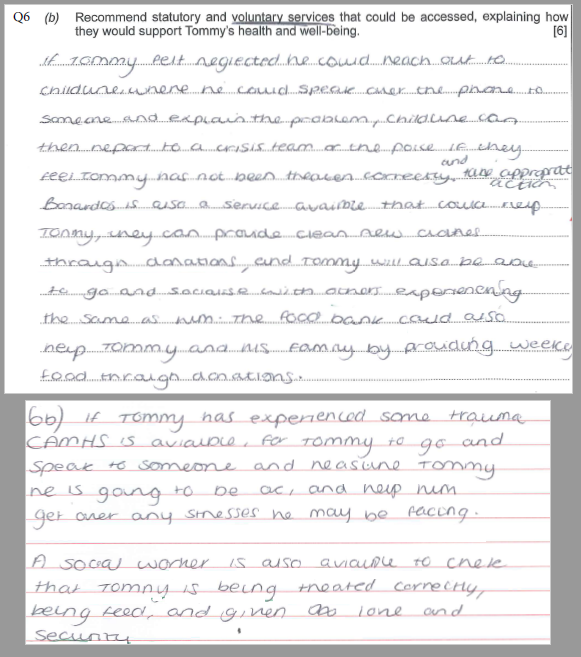 Q6 (b) Recommend statutory and voluntary services that could be accessed, explaining how
they would support Tommy's health and well-being. [6]
If Tommy felt neglected he could reach out to
childline, where he could speak over the phone to
someone and explain the problem, Childline can
then report to a crisis team or the police if they
feel Tommy has not been treaten correctly, and take appropriat
action.
Bonardos is also a service availble that could help
Tommy, they can provide clean new clothes
through donations, and Tommy will also be able
to go and socialise with others experienening
the same as him. The food bank could also
help Tommy and his family by providing weekly
food through donations.
6b) If Tommy has experienced some trauma
CAMHS is aviable, for Tommy to go and
speak to someone and reasure Tommy
he is going to be ok, and help him
get over any stresses he may be facing.
A social worker is also aviable to chek
that Tommy is being treated correctly,
being feed, and given love and
security